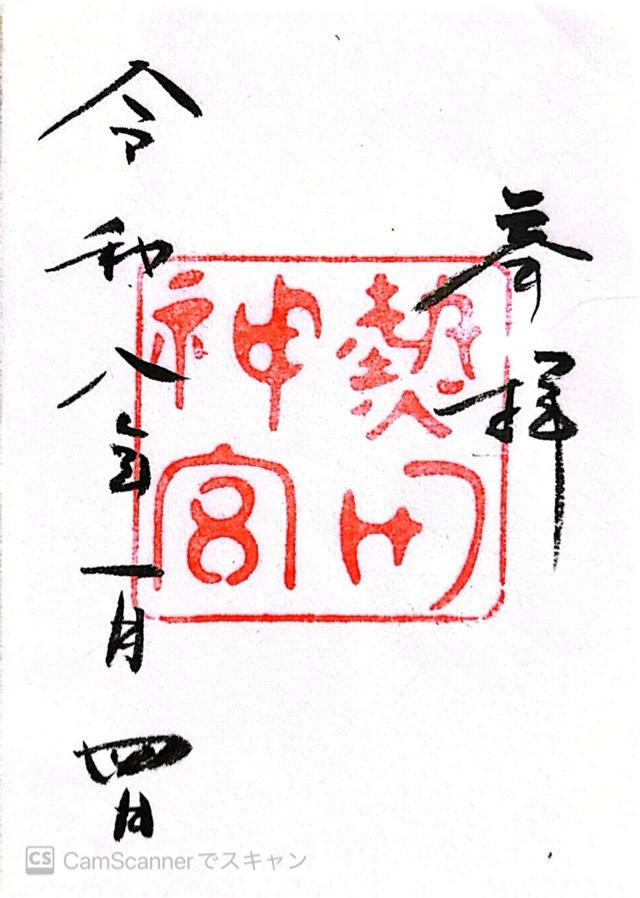 参拝
熱田
神宮
令和八年一月四日
CS CamScannerでスキャン